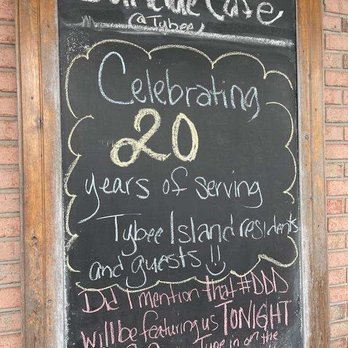 Cafe
@ Tybee
Celebrating
20
years of serving
Tybee Island residents
and guests!!
Did I mention that #DDD
will be featuring us TONIGHT
Tune in on the